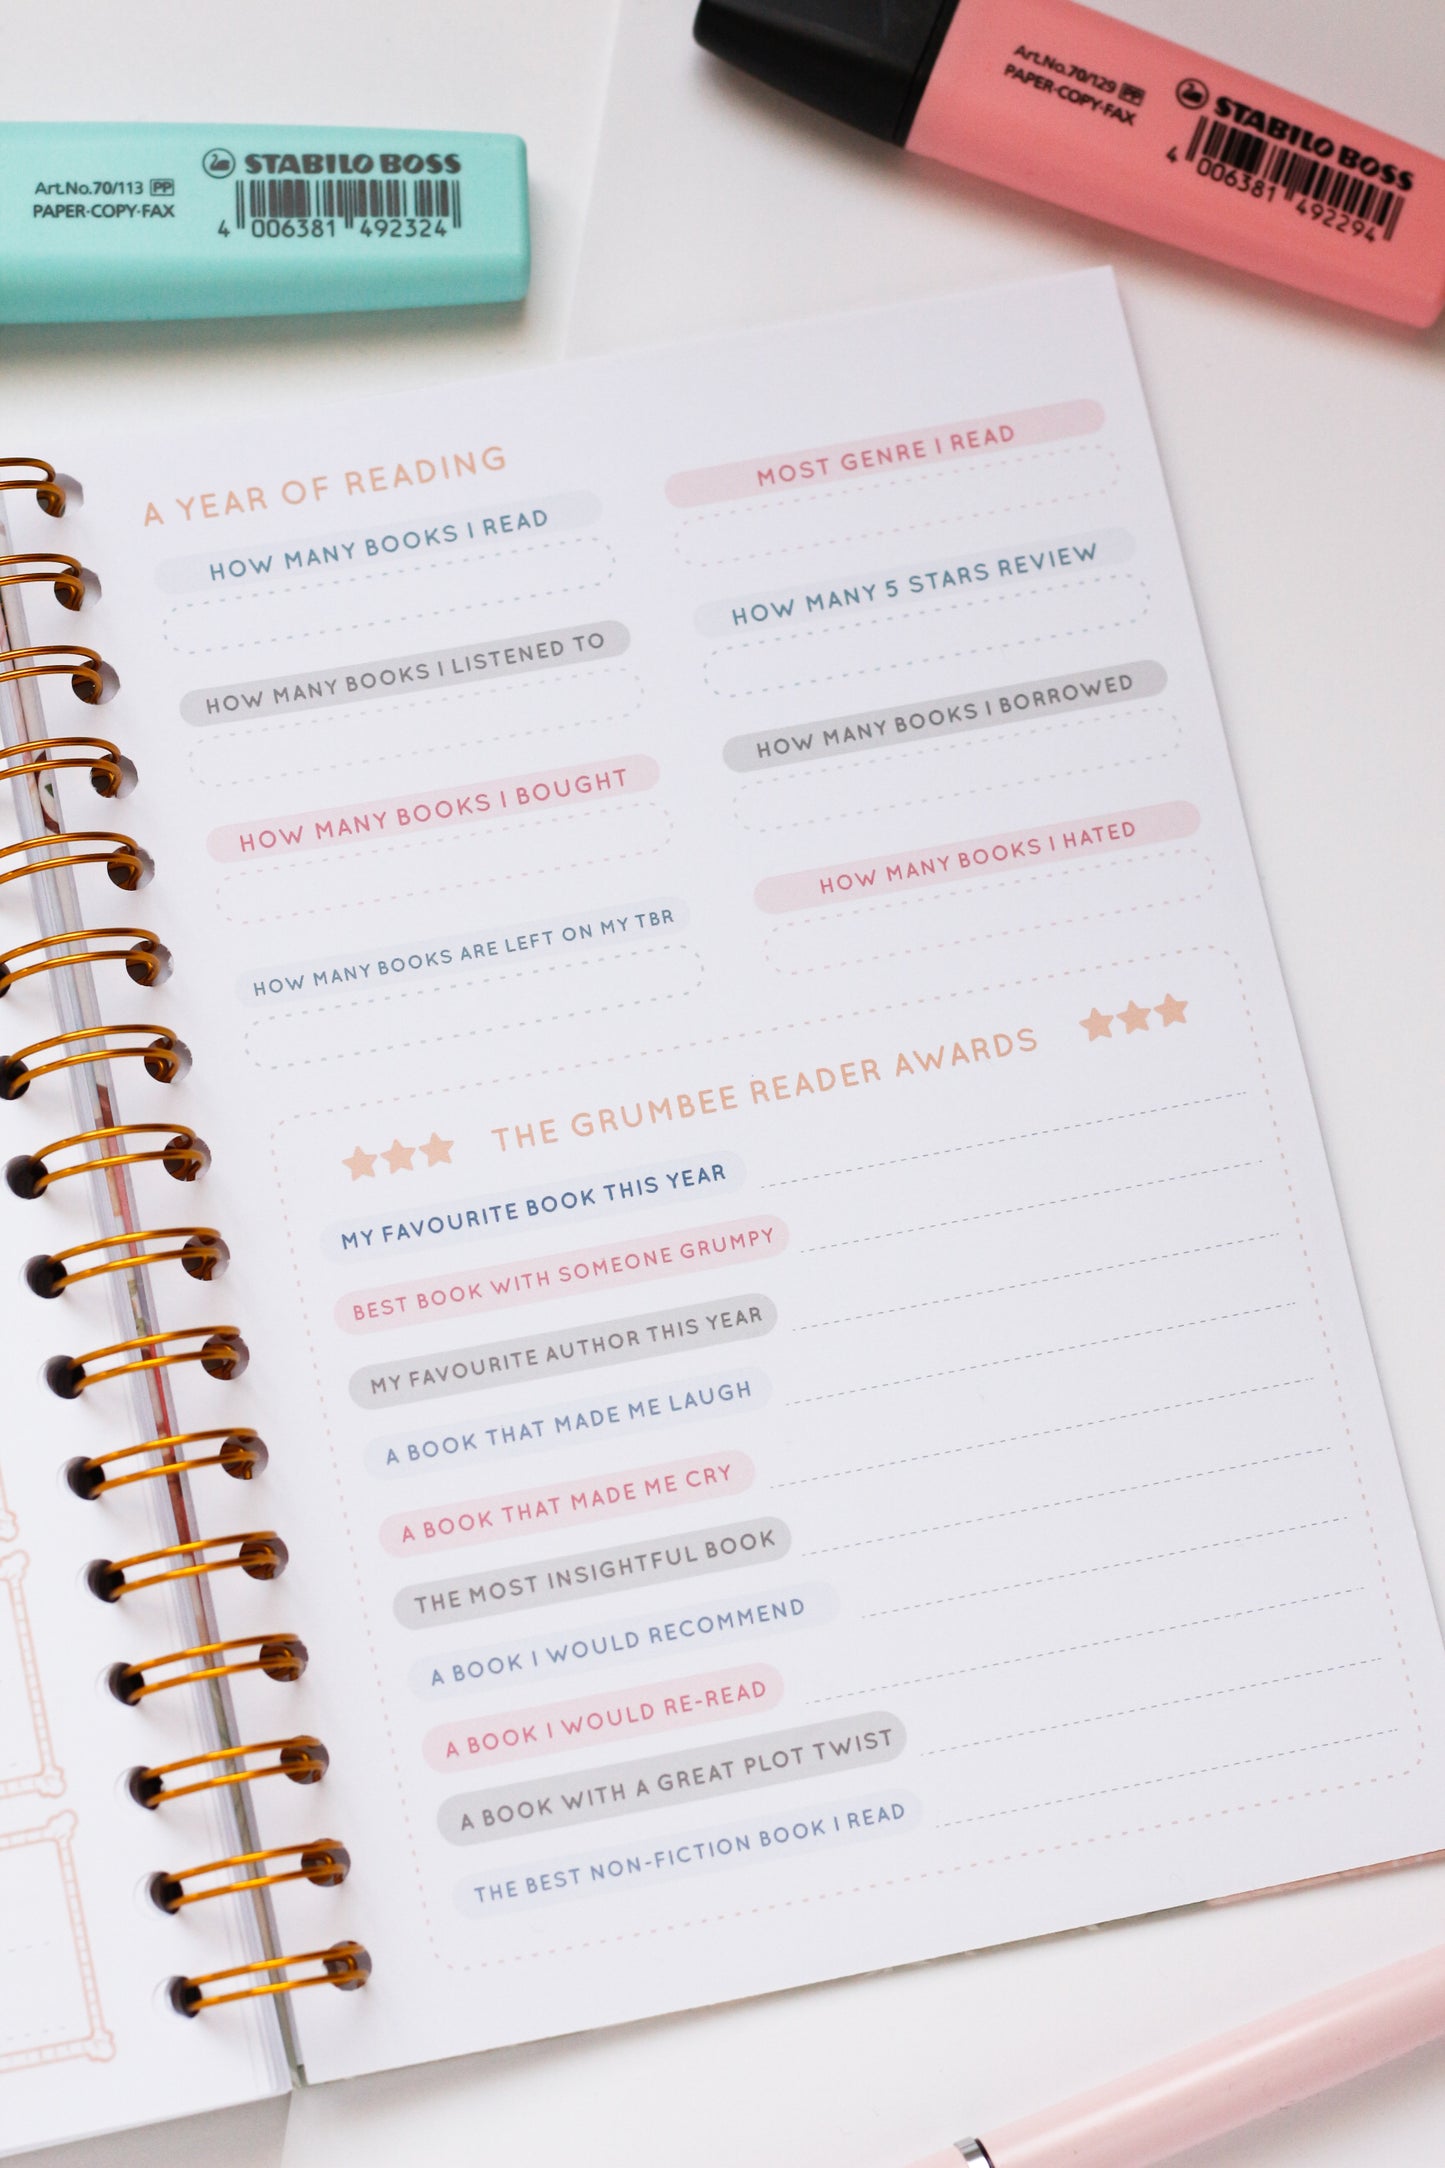 STABILO BOSS
Art.No.70/113 PP
PAPER-COPY-FAX
4 006381 492324
Art.No.70/129 PP
PAPER-COPY-FAX
STABILO BOSS
4 006381 492294
A YEAR OF READING
HOW MANY BOOKS I READ
HOW MANY BOOKS I LISTENED TO
HOW MANY BOOKS I BOUGHT
HOW MANY BOOKS ARE LEFT ON MY TBR
MOST GENRE I READ
HOW MANY 5 STARS REVIEW
HOW MANY BOOKS I BORROWED
HOW MANY BOOKS I HATED
THE GRUMBEE READER AWARDS
MY FAVOURITE BOOK THIS YEAR
BEST BOOK WITH SOMEONE GRUMPY
MY FAVOURITE AUTHOR THIS YEAR
A BOOK THAT MADE ME LAUGH
A BOOK THAT MADE ME CRY
THE MOST INSIGHTFUL BOOK
A BOOK I WOULD RECOMMEND
A BOOK I WOULD RE-READ
A BOOK WITH A GREAT PLOT TWIST
THE BEST NON-FICTION BOOK I READ